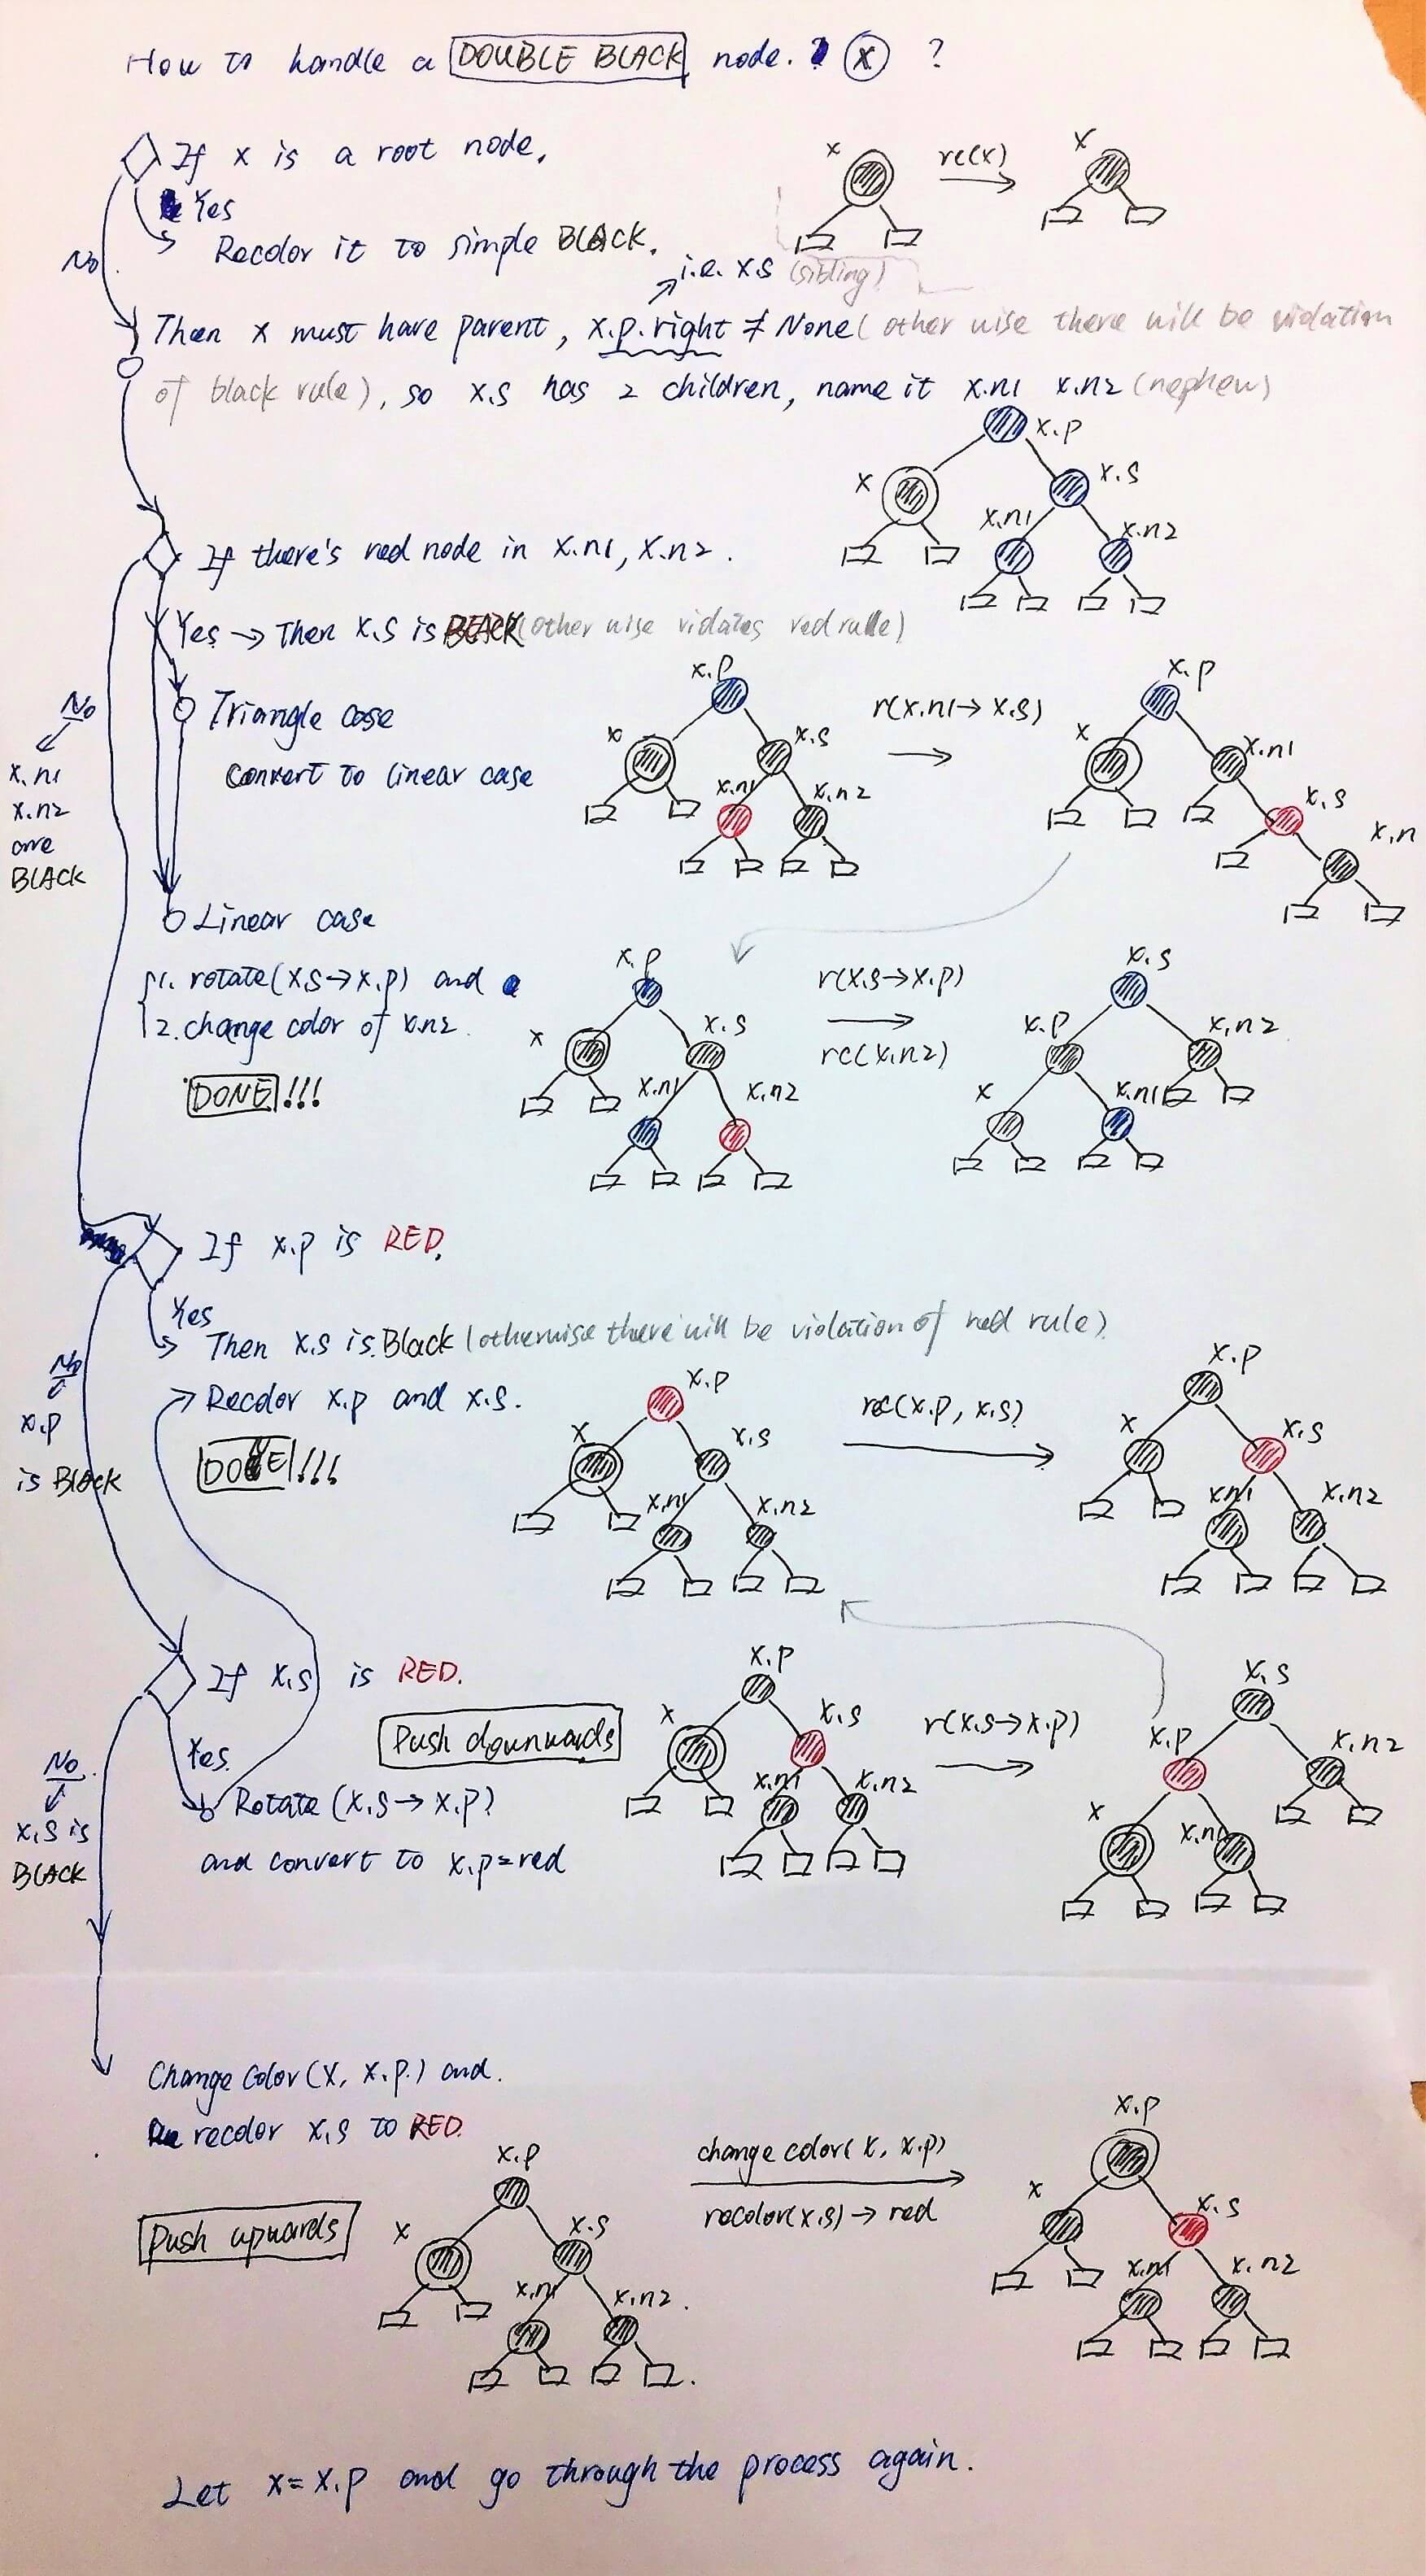 How to handle a DOUBLE BLACK node. X ?
If x is a root node,
Yes
Recolor it to simple BLACK.
No
x
rc(x)
x
i.e. x.s (sibling)
Then x must have parent, x.p.right ≠ None (other wise there will be violation
of black rule), so x.s has 2 children, name it x.n1 x.n2 (nephew)
x.p
x
x.s
x.n1
x.n2
If there's red node in x.n1, x.n2.
Yes → Then x.s is BLACK (other wise violates red rule)
No
x.n1
x.n2
are
BLACK
Triangle case
Convert to linear case
x.p
x
x.s
x.n1
x.n2
r(x.n1→x.s)
x.p
x
x.n1
x.s
x.n
Linear case
1. rotate(x.s→x.p) and
2. change color of x.n2.
DONE!!!
x.p
x
x.s
x.n1
x.n2
r(x.s→x.p)
rc(x.n2)
x.s
x.p
x.n2
x
x.n1
If x.p is RED.
Yes
Then x.s is Black (otherwise there will be violation of red rule)
Recolor x.p and x.s.
DONE!!!
No
x.p
is Black
x.p
x
x.s
x.n1
x.n2
rc(x.p, x.s)
x.p
x
x.s
x.n1
x.n2
If x.s is RED.
Push downwards
Yes.
Rotate (x.s→x.p)
and convert to x.p=red
No.
x.s is
BLACK
x.p
x
x.s
x.n1
x.n2
r(x.s→x.p)
x.s
x.p
x.n2
x
x.n1
Change Color(x, x.p.) and.
recolor x.s to RED.
Push upwards
x.p
x
x.s
x.n1
x.n2.
change color(x, x.p)
recolor(x.s)→red
x.p
x
x.s
x.n1
x.n2
Let x=x.p and go through the process again.